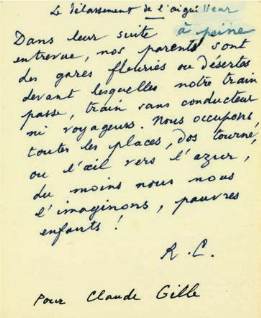 Le délassement de l'aiguilleur
Dans leur suite à peine
entrevue, nos parents sont
des gares fleuries ou désertes
devant lesquelles notre train
passe, train sans conducteur
ni voyageurs. Nous occupons,
toutes les places, dos tourné,
ou l'œil vers l'azur,
du moins nous nous
l'imaginons, pauvres
enfants !
R. C.
Pour Claude Gille